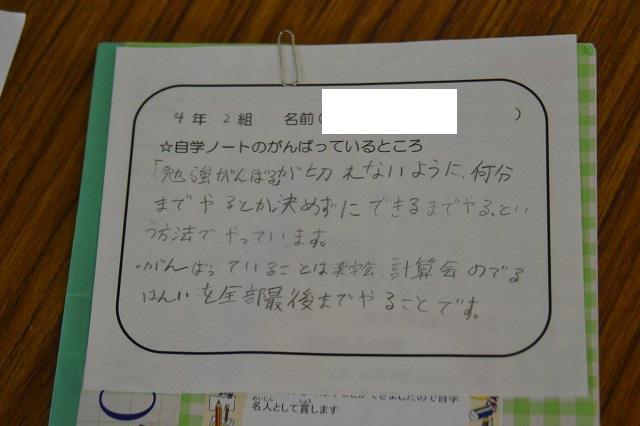 4年 2組 名前( )
☆自学ノートのがんばっているところ
「勉強がんばる」が切れないように、何分
までやるとか決めずにできるまでやる。とい
う方法でやっています。
・がんばっていることは漢字会、計算会のでる
はんいを全部最後までやることです。
できましたので自学
名人として賞します
めいじん
しょう